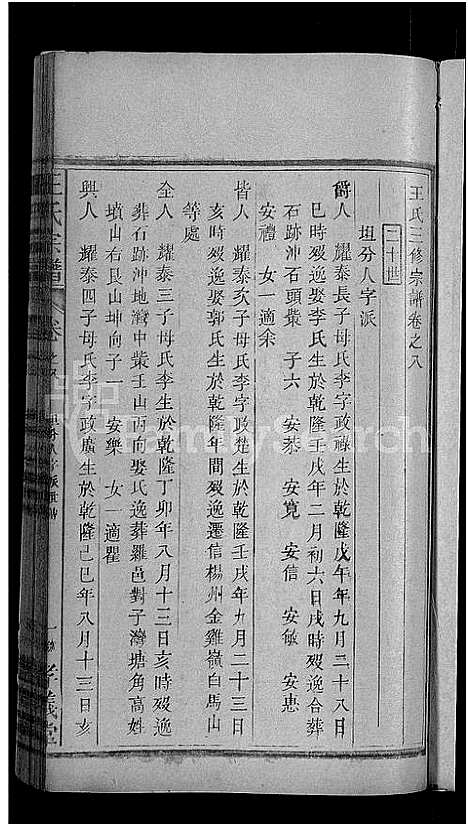 王氏三修宗譜卷之八
二十世
坦分人字派
爵人 耀泰長子母氏李字政祿生於乾隆戊午年九月二十八日
巳時歿逸娶氏李生於乾隆壬戌年二月初六日戌時歿逸合葬
石跡沖石頭棠 子六 安泰 安寬 安信 安敏 安惠
安禮 女一適余
皆人 耀泰次子母氏李字政楚生於乾隆壬戌年九月二十三日
亥時歿逸娶郭氏生於乾隆年間歿逸遷信楊州金雞嶺白馬山
等處
全人 耀泰三子母氏李生於乾隆丁卯年八月十三日亥時歿逸
葬石跡沖地灣中棠壬山丙向娶氏逸葬羅邑對子灣塘角高姓
墳山右艮山坤向子一 安樂 女一適瞿
興人 耀泰四子母氏李字政廣生於乾隆己巳年八月十三日亥
王氏宗譜 卷之八 坦分人字派世傳 一 孝義堂
FamilySearch